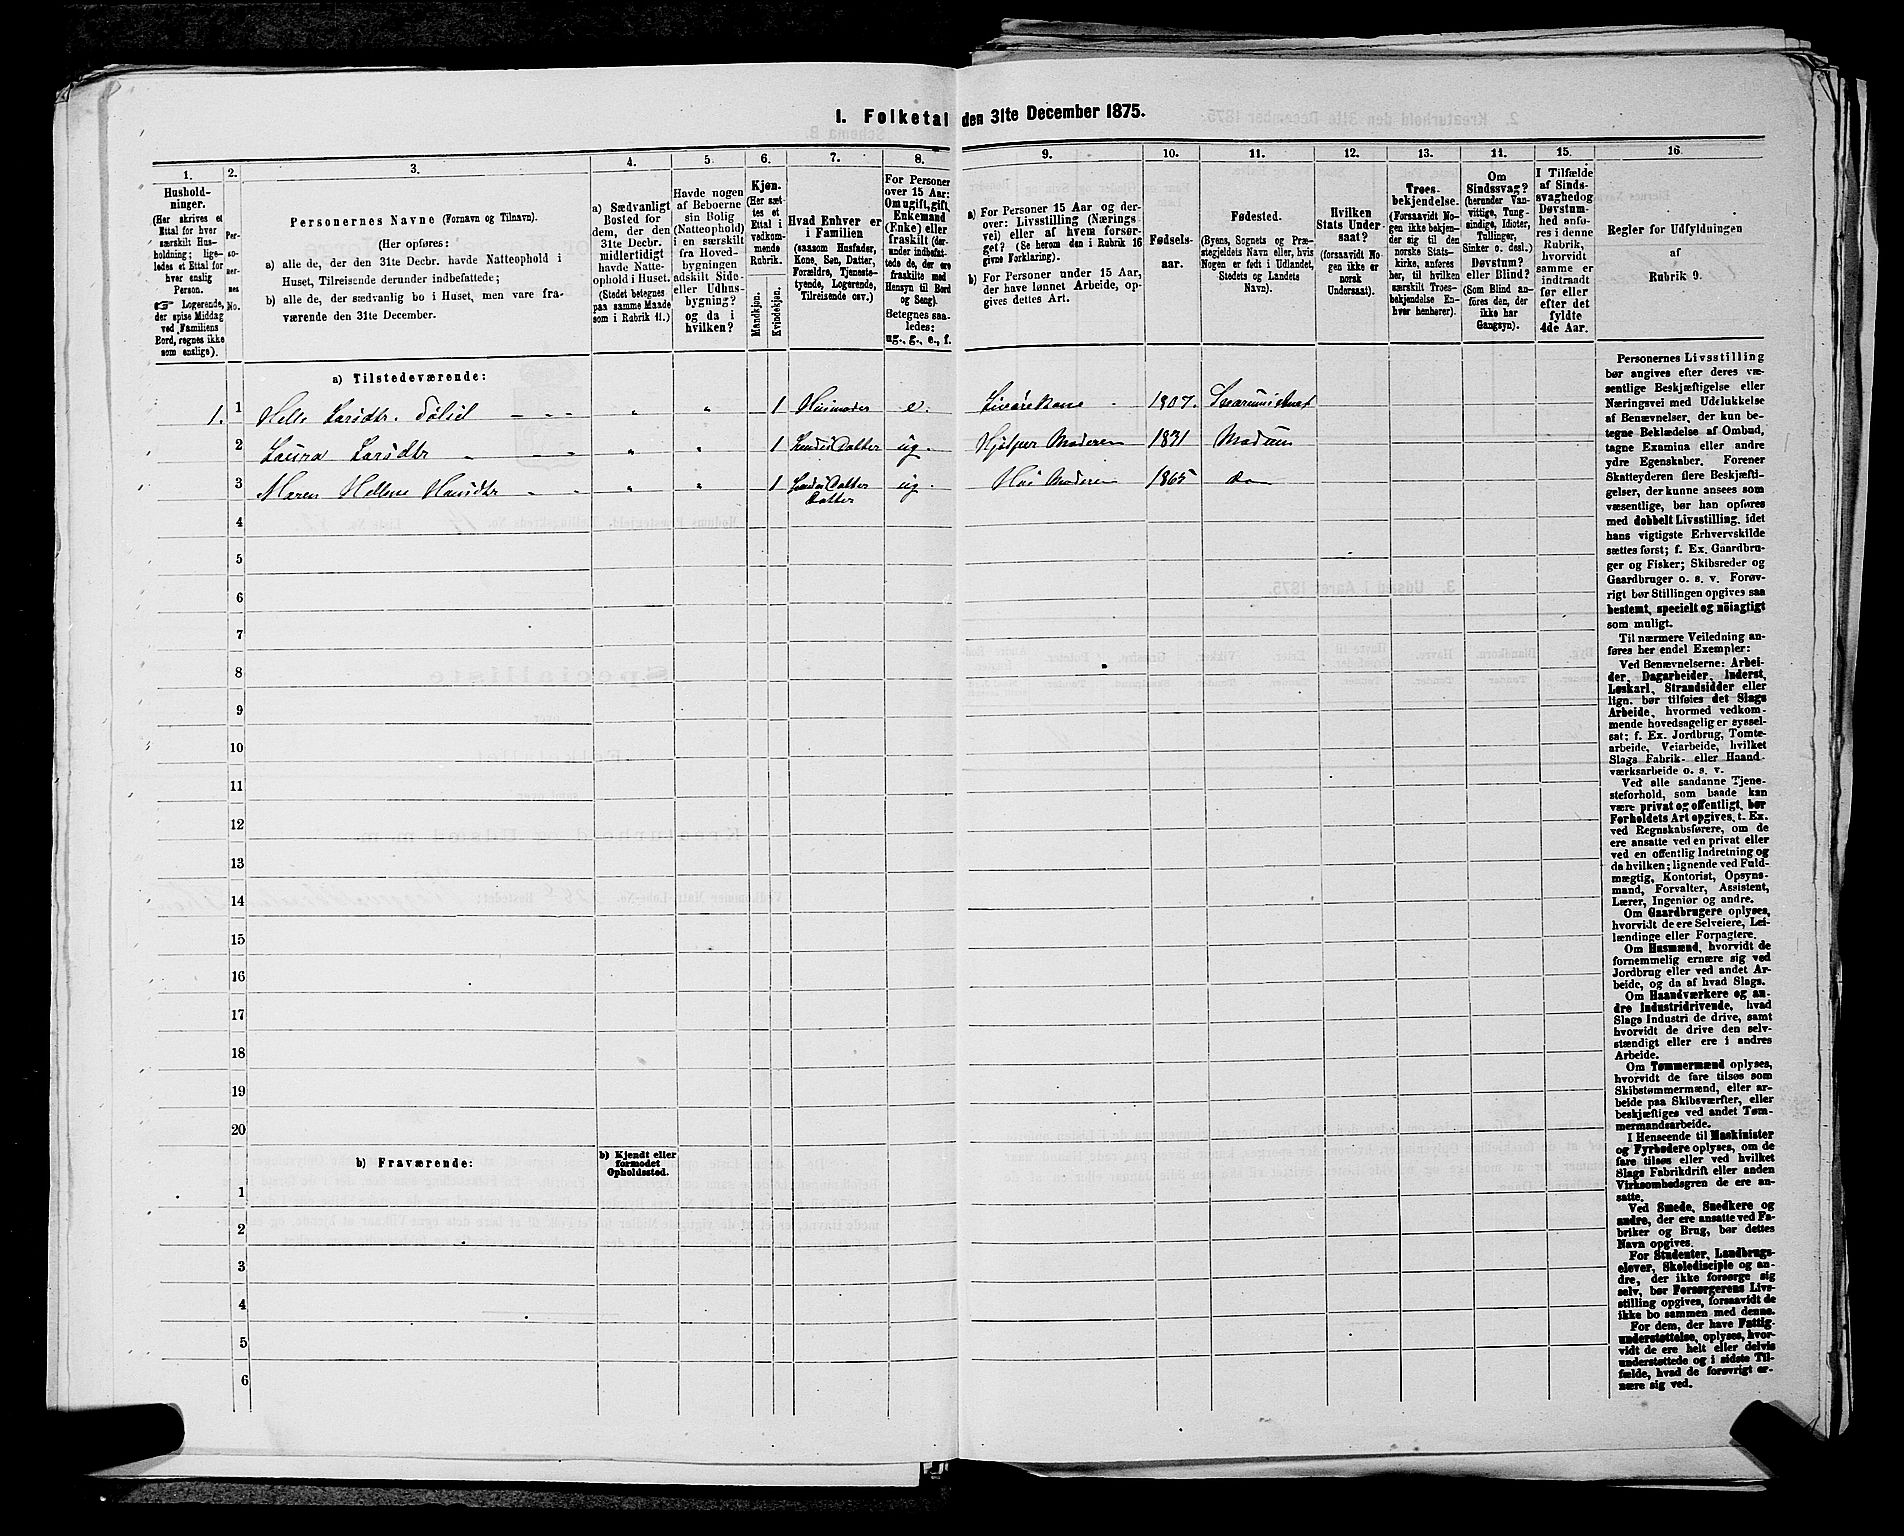 1. Folketal den 31te December 1875.
1.
Husholdninger.
(Her skrives et
Ettal for hver
særskilt Husholdning; ligeledes et Ettal for
hver enslig
Person.
☞ Logerende,
der spise Middag
ved Familiens
Bord, regnes ikke
som enslige).
2.
Personernes
No.
3.
Personernes Navne (Fornavn og Tilnavn).
(Her opføres:
a) alle de, der den 31te Decbr. havde Natteophold i
Huset, Tilreisende derunder indbefattede;
b) alle de, der sædvanlig bo i Huset, men vare fraværende den 31te December.
4.
a) Sædvanligt
Bosted for
dem, der den
31te Decbr.
midlertidigt
havde Natteophold i Huset.
(Stedet betegnes
paa samme Maade
som i Rubrik 11.)
5.
Havde nogen
af Beboerne
sin Bolig
(Natteophold)
i en særskilt
fra Hovedbygningen
adskilt Side-
eller Udhusbygning?
og da i
hvilken?
6.
Kjøn.
(Her sættes et
Ettal i
vedkommende
Rubrik.
Mandkjøn.
Kvindekjøn.
7.
Hvad Enhver er
i Familien
(saasom Husfader,
Kone, Søn, Datter,
Forældre, Tjenestetyende, Logerende,
Tilreisende osv.)
8.
For Personer
over 15 Aar:
Om ugift, gift,
Enkemand
(Enke) eller
fraskilt (derunder indbefattede de, der ere
fraskilte med
Hensyn til Bord
og Seng).
Betegnes saaledes:
ug., g., e., f.
9.
a) For Personer 15 Aar og derover: Livsstilling (Næringsvei) eller af hvem forsørget? (Se herom den i Rubrik 16
givne Forklaring).
b) For Personer under 15 Aar,
der have lønnet Arbeide, opgives dettes Art.
10.
Fødselsaar.
11.
Fødested.
(Byens, Sognets og Præstegjeldets Navn, eller, hvis
Nogen er født i Udlandet,
Stedets og Landets
Navn).
12.
Hvilken
Stats Undersaat?
(forsaavidt Nogen ikke er
norsk
Undersaat).
13.
Troesbekjendelse.
(Forsaavidt Nogen ikke bekjender sig til den
norske Statskirke, anføres
her, til hvilken
særskilt Troesbekjendelse Enhver henhører).
14.
Om
Sindssvag?
(herunder Vanvittige, Tungsindige, Idioter,
Tullinger,
Sinker o. desl.)
Døvstum?
eller Blind?
(Som Blind anføres den, der
ikke har
Gangsyn).
15.
I Tilfælde
af Sindssvaghed og
Døvstumhed anføres i denne
Rubrik,
hvorvidt
samme er
indtraadt
før eller
efter det
fyldte
4de Aar.
16.
Regler for Udfyldningen
af
Rubrik 9.
a) Tilstedeværende:
1. 1 Larsdtr. 1 Husmoder e. 1807.
2 Laura Larsdtr 1 Datter ug. Hjelper Moderen 1831 Modum
3 Maren Hellene Hansdtr 1 Datter ug. Hos Moderen 1865 do
Datter
4
5
6
7
8
9
10
11
12
13
14
15
16
17
18
19
20
b) Fraværende:
b) Kjendt eller
formodet
Opholdssted.
1
2
3
4
5
6
Personernes Livsstilling
bør angives efter deres væsentlige Beskjæftigelse eller
Næringsvei med Udelukkelse
af Benævnelser, der kun betegne Beklædelse af Ombud,
tagne Examina eller andre
ydre Egenskaber. Forener
Skatteyderen flere Beskjæftigelser, der kunne ansees som
væsentlige, bør han opføres
med dobbelt Livsstilling, idet
hans vigtigste Erhvervskilde
sættes først; f. Ex. Gaardbruger og Fisker; Skibsreder og
Gaardbruger o. s. v. Forøvrigt bør Stillingen opgives saa
bestemt, specielt og nöiagtigt
som muligt.
Til nærmere Veiledning anføres her endel Exempler:
Ved Benævnelserne: Arbeider, Dagarbeider, Inderst,
Løskarl, Strandsidder eller
lign. bør tilføies det Slags
Arbeide, hvormed vedkommende hovedsagelig er sysselsat; f. Ex. Jordbrug, Tomtearbeide, Veiarbeide, hvilket
Slags Fabrik- eller Haandværksarbeide o. s. v.
Ved alle saadanne Tjenesteforhold, som baade kan
være privat og offentligt, bør
Forholdets Art opgives, t. Ex.
ved Regnskabsførere, om de
ere ansatte ved en privat eller
ved en offentlig Indretning og
da hvilken; lignende ved Fuldmægtig, Kontorist, Opsynsmand, Forvalter, Assistent,
Lærer, Ingeniør og andre.
Om Gaardbrugere oplyses,
hvorvidt de ere Selveiere, Leilændinge eller Forpagtere.
Om Husmænd, hvorvidt de
fornemmelig ernære sig ved
Jordbrug eller ved andet Arbeide, og da af hvad Slags.
Om Haandværkere og andre Industridrivende, hvad
Slags Industri de drive, samt
hvorvidt de drive den selvstændigt eller ere i andres
Arbeide.
Om Tømmermænd oplyses,
hvorvidt de fare tilsøs som
Skibstømmermænd, eller arbeide paa Skibsværfter, eller
beskjæftiges ved andet Tømmermandsarbeide.
I Henseende til Maskinister
og Fyrbødere oplyses, om de
fare tilsøs eller ved hvilket
Slags Fabrikdrift eller anden
Virksomhedsgren de ere ansatte.
Ved Smede, Snedkere og
andre, der ere ansatte ved Fabriker og Brug, bør dettes
Navn opgives.
For Studenter, Landbrugselever, Skoledisciple og andre, der ikke forsørge sig
selv, bør Forsørgerens Livsstilling opgives, forsaavidt de
ikke bo sammen med denne.
For dem, der have Fattigunderstøttelse, oplyses, hvorvidt de ere helt eller delvis
understøttede og i sidste Tilfælde, hvad de forøvrigt ernære sig ved.